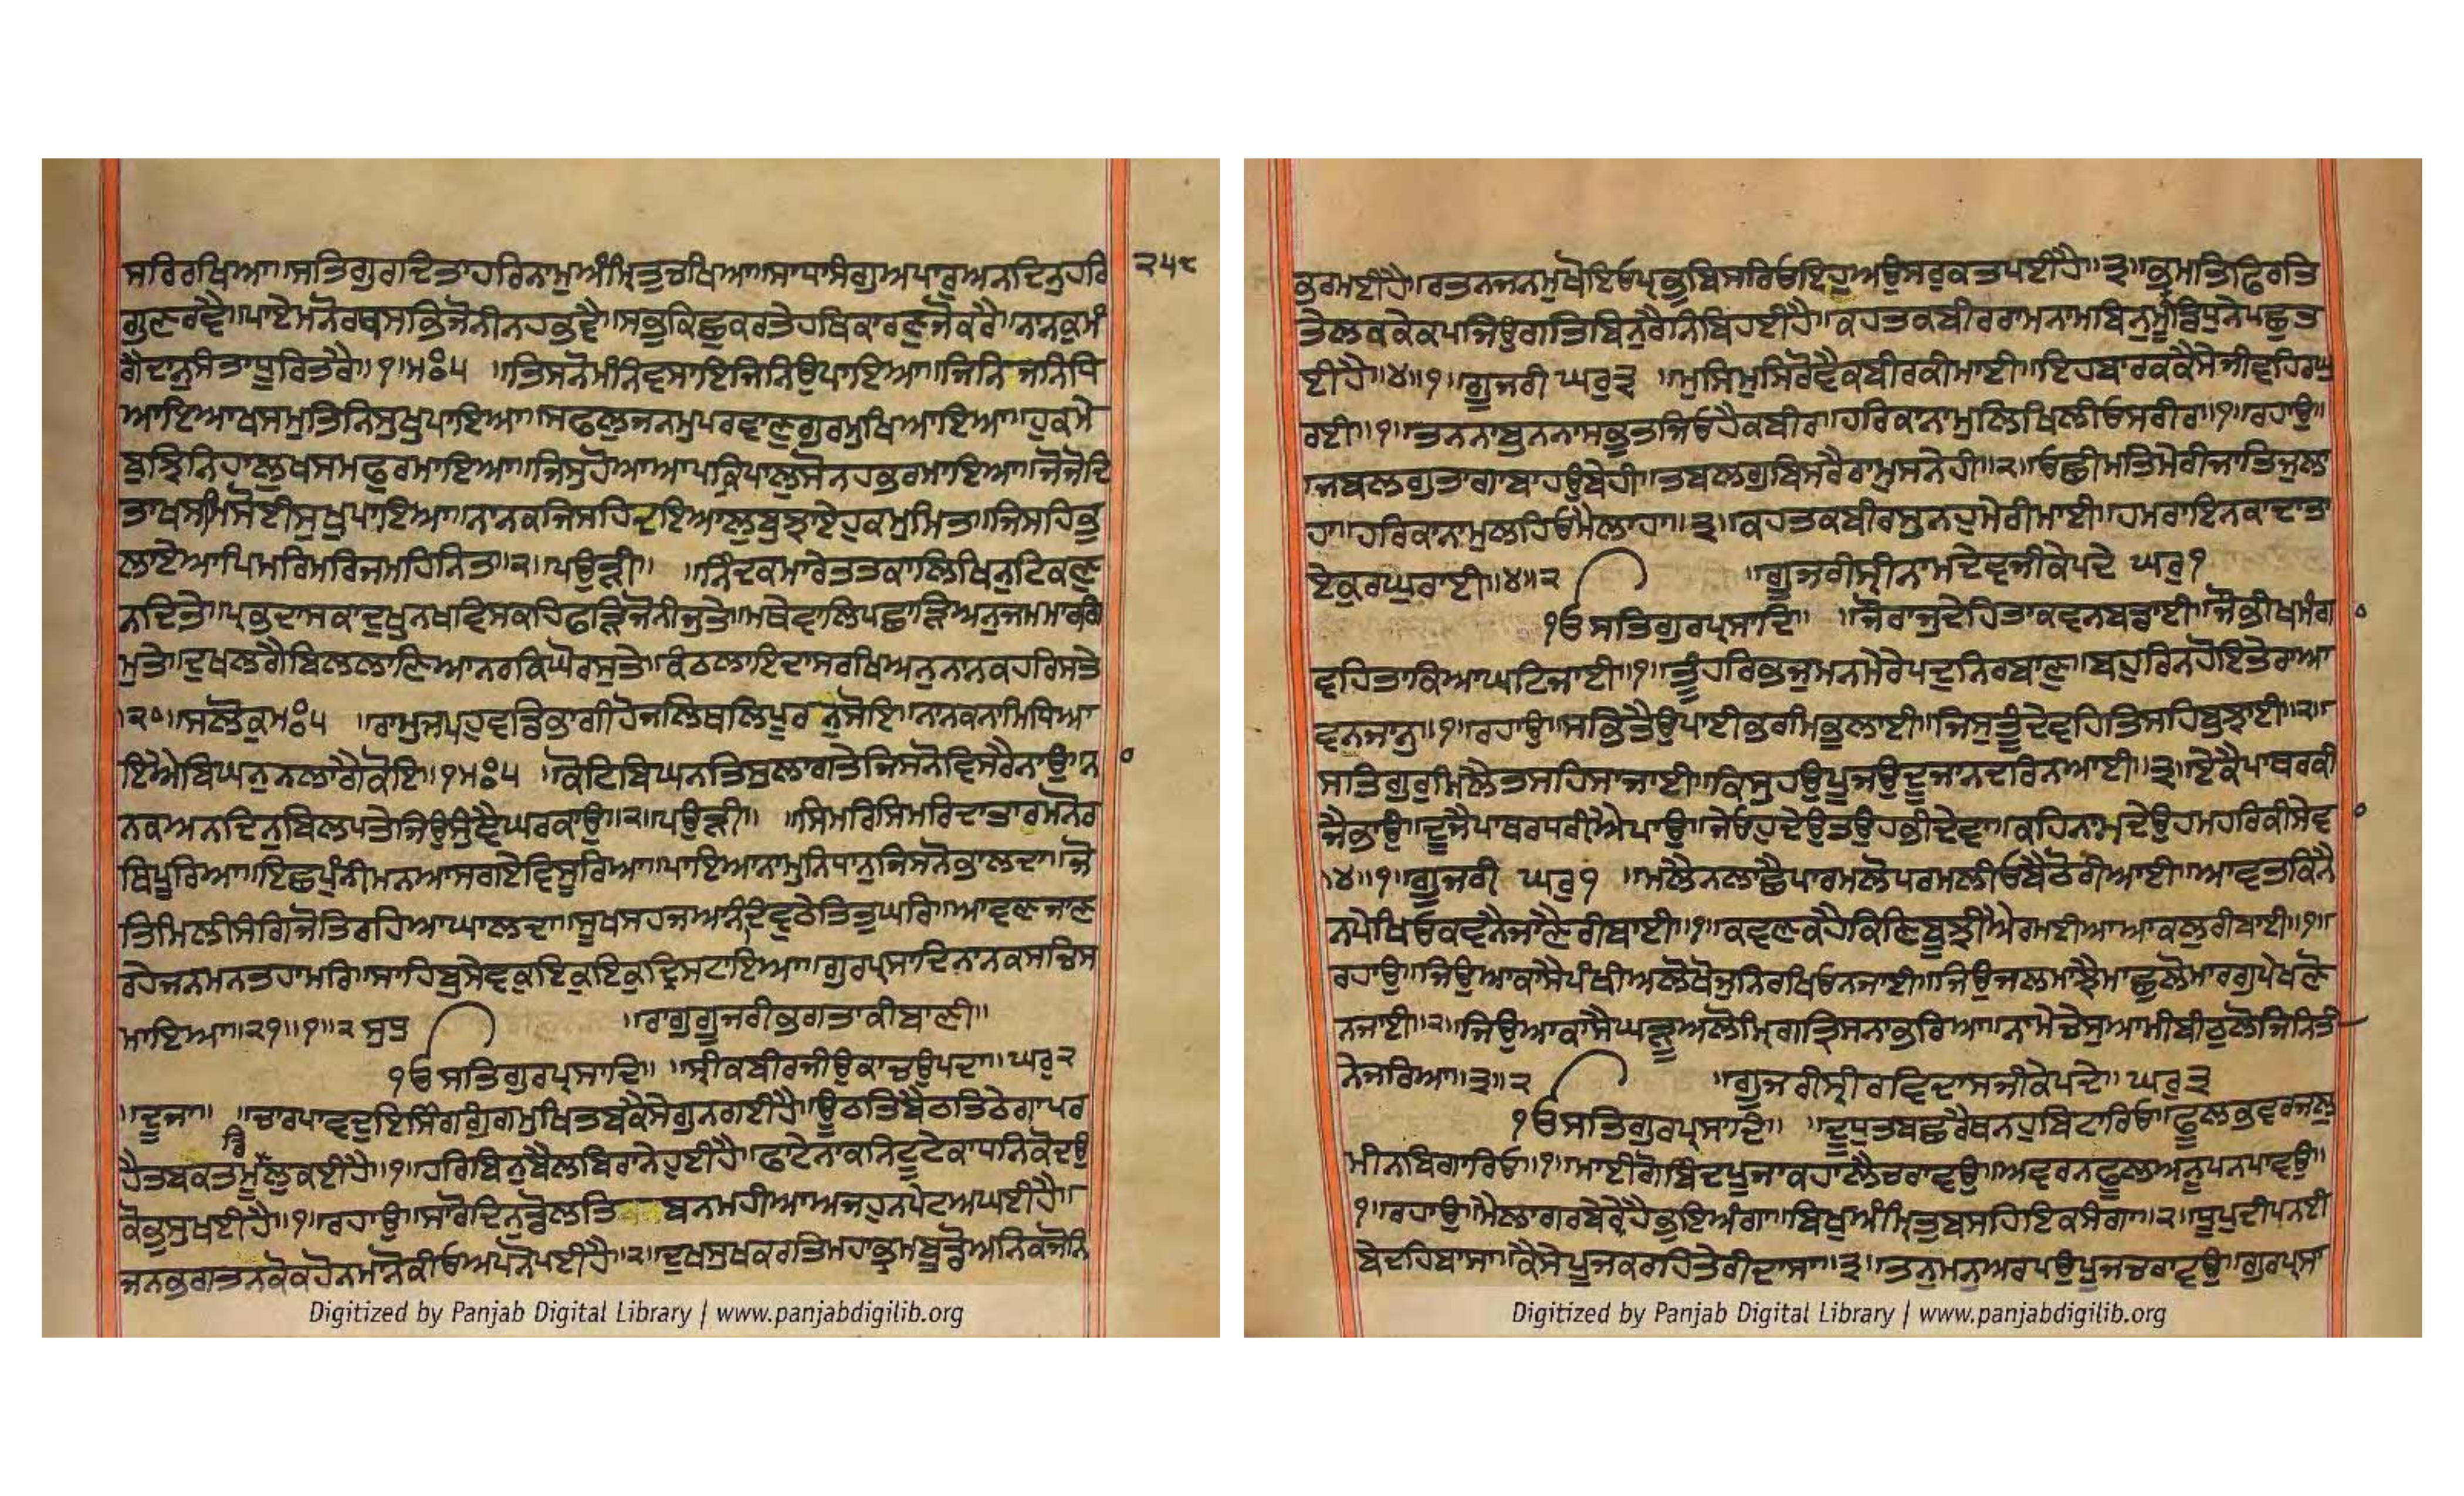 ਸਰਿਰਖਿਆ॥ਸਤਿਗੁਰਾਦਿਤਾਹਰਿਨਾਮੁਅੰਮ੍ਰਿਤੁਚਖਿਆ॥ਸਾਧਾਸੰਗੁਅਪਾਰੁਅਨਦਿਨੁਹਰਿ ੨੫੮
ਗੁਣਰਵੈ॥ਪਾਏਮਨੋਰਥਸਭਿਜੋਨੀਨਹਭਵੈ॥ਸਭੁਕਿਛੁਕਰਤੇਹਥਿਕਾਰਣੁਜੋਕਰੈ॥ਨਾਨਕੁਮੰ
ਗੈਦਾਨੁਸੰਤਾਧੂਰਿਤਰੈ॥੧॥ਮਃ੫ ॥ਤਿਸਨੋਮੰਨਿਵਸਾਇਜਿਨਿਉਪਾਇਆ॥ਜਿਨਿਜਨਿਧਿ
ਆਇਆਖਸਮੁਤਿਨਿਸੁਖੁਪਾਇਆ॥ਸਫਲੁਜਨਮੁਪਰਵਾਣੁਗੁਰਮੁਖਿਆਇਆ॥ਹੁਕਮੇ
ਬੁਝਿਨਿਹਾਲੁਖਸਮਫੁਰਮਾਇਆ॥ਜਿਸੁਹੋਆਆਪਕ੍ਰਿਪਾਲੁਸੋਨਹਭਰਮਾਇਆ॥ਜੋਜੋਦਿ
ਤਾਖਸਮਿਸੋਈਸੁਖੁਪਾਇਆ॥ਨਾਨਕਜਿਸਹਿਦਇਆਲੁਬੁਝਾਏਹੁਕਮੁਮਿਤ॥ਜਿਸਹਿਭੁ
ਲਾਏਆਪਿਮਰਿਮਰਿਜਮਹਿਨਿਤ॥੨॥ਪਉੜੀ॥ ॥ਨਿੰਦਕਮਾਰੇਤਤਕਾਲਿਖਿਨੁਟਿਕਣੁ
ਨਦਿਤੇ॥ਪ੍ਰਭਦਾਸਕਾਦੁਖੁਨਖਵਿਸਕਹਿਫੜਿਜੋਨੀਜੁਤੇ॥ਮਥੇਵਾਲਿਪਛਾੜਿਅਨੁਜਮਮਾਰਗਿ
ਮੁਤੇ॥ਦੁਖਲਗੈਬਿਲਲਾਣਿਆਨਰਕਿਘੋਰਸੁਤੇ॥ਕੰਠਲਾਇਦਾਸਰਖਿਅਨੁਨਾਨਕਹਰਿਸਤੇ
॥੨੦॥ਸਲੋਕੁਮਃ੫ ॥ਰਾਮੁਜਪਹੁਵਡਿਭਾਗੀਹੋਜਲਿਥਲਿਪੂਰਨੁਸੋਇ॥ਨਾਨਕਨਾਮਿਧਿਆ
ਇਐਬਿਘਨੁਨਲਾਗੈਕੋਇ॥੧ਮਃ੫ ॥ਕੋਟਿਬਿਘਨਤਿਸੁਲਾਗਤੇਜਿਸਨੋਵਿਸਰੈਨਾਉ॥ਨਾ
ਨਕਅਨਦਿਨੁਬਿਲਪਤੇਜਿਉਸੁੰਞੈਘਰਕਾਉ॥੨॥ਪਉੜੀ॥ ॥ਸਿਮਰਿਸਿਮਰਿਦਾਤਾਰਮਨੋਰ
ਥਿਪੂਰਿਆ॥ਇਛਪੁੰਨੀਮਨਆਸਗਏਵਿਸੂਰਿਆ॥ਪਾਇਆਨਾਮੁਨਿਧਾਨੁਜਿਸਨੋਭਾਲਦਾ॥ਜੋ
ਤਿਮਿਲੀਸੰਗਿਜੋਤਿਰਹਿਆਘਾਲਦਾ॥ਸੂਖਸਹਜਅਨੰਦਵੁਠੇਤਿਤੁਘਰਿ॥ਆਵਣਜਾਣ
ਰਹੇਜਨਮਨਤਹਾਮਰਿ॥ਸਾਹਿਬੁਸੇਵਕੁਇਕੁਇਕੁਦ੍ਰਿਸਟਾਇਆ॥ਗੁਰਪ੍ਰਸਾਦਿਨਾਨਕਸਚਿਸ
ਮਾਇਆ॥੨੧॥੧॥੨ ਸੁਧੁ ॥ਰਾਗੁਗੂਜਰੀਭਗਤਾਕੀਬਾਣੀ॥
੧ਓਸਤਿਗੁਰਪ੍ਰਸਾਦਿ॥ ॥ਸ੍ਰੀਕਬੀਰਜੀਉਕਾਚਉਪਦਾ॥ਘਰੁ੨
॥ਦੂਜਾ॥ ॥ਚਾਰਪਾਵਦੁਇਸਿੰਗਗੁੰਗਮੁਖਿਤਬਕੈਸੇਗੁਨਗਈਹੈ॥ਊਠਤਿਬੈਠਤਿਠੇਗਾਪਰ
ਹੈਤਬਕਤਮੂੰਡਲੁਕਈਹੈ॥੧॥ਹਰਿਬਿਨੁਬੈਲਬਿਰਾਨੇਹੁਈਹੈ॥ਫਾਟੇਨਾਕਨਿਟੂਟੇਕਾਧਨਿਕੋਦਉ
ਕੋਭੁਸੁਖਈਹੈ॥੧॥ਰਹਾਉ॥ਸਾਰੋਦਿਨੁਡੋਲਤਿਬਨਮਹੀਆਅਜਹੁਨਪੇਟਅਘਈਹੈ॥
ਜਨਭਗਤਨਕੋਕਹੋਨਮਾਨੋਕੀਓਅਪਨੋਪਈਹੈ॥੨॥ਦੁਖਸੁਖਕਰਤਿਮਹਾਭ੍ਰਮਬੂਡੋਅਨਿਕਜੋਨਿ
ਭਰਮਈਹੈ॥ਰਤਨਜਨਮੁਖੋਇਓਪ੍ਰਭੁਬਿਸਰਿਓਇਹੁਅਉਸਰੁਕਤਪਈਹੈ॥੩॥ਭ੍ਰਮਤਿਫਿਰਤਿ
ਤੇਲਕਕੇਕਪਜਿਉਗਤਿਬਿਨੁਰੈਨਿਬਿਹਈਹੈ॥ਕਹਤਕਬੀਰਰਾਮਨਾਮਬਿਨੁਮੂੰਡਿਧੁਨੇਪਛੁਤ
ਈਹੈ॥੪॥੧॥ਗੂਜਰੀ ਘਰੁ੩ ॥ਮੁਸਿਮੁਸਿਰੋਵੈਕਬੀਰਕੀਮਾਈ॥ਇਹਬਾਰਕਕੈਸੇਜੀਵਹਿਰਘੁ
ਰਈ॥੧॥ਤਨਨਾਬੁਨਨਾਸਭੁਤਜਿਓਹੈਕਬੀਰ॥ਹਰਿਕਾਨਾਮੁਲਿਖਿਲੀਓਸਰੀਰ॥੧॥ਰਹਾਉ॥
ਜਬਲਗੁਤਾਗਾਬਾਹਉਬੇਹੀ॥ਤਬਲਗੁਬਿਸਰੈਰਾਮੁਸਨੇਹੀ॥੨॥ਓਛੀਮਤਿਮੇਰੀਜਾਤਿਜੁਲਾ
ਹਾ॥ਹਰਿਕਾਨਾਮੁਲਹਿਓਮੈਲਾਹਾ॥੩॥ਕਹਤਕਬੀਰਸੁਨਹੁਮੇਰੀਮਾਈ॥ਹਮਰਾਇਨਕਾਦਾਤਾ
ਏਕੁਰਘੁਰਾਈ॥੪॥੨ ॥ਗੂਜਰੀਸ੍ਰੀਨਾਮਦੇਵਜੀਕੇਪਦੇ ਘਰੁ੧
੧ਓਸਤਿਗੁਰਪ੍ਰਸਾਦਿ॥ ॥ਜੌਰਾਜੁਦੇਹਿਤਾਕਵਨਬਡਾਈ॥ਜੌਭੀਖਮੰਗਾ
ਵਹਿਤਾਕਿਆਘਟਿਜਾਈ॥੧॥ਤੂੰਹਰਿਭਜੁਮਨਮੇਰੇਪਦੁਨਿਰਬਾਣੁ॥ਬਹੁਰਿਨਹੋਇਤੇਰਾਆ
ਵਨਜਾਨੁ॥੧॥ਰਹਾਉ॥ਸਭਿਤੈਉਪਾਈਭਰਮਿਭੁਲਾਈ॥ਜਿਸੁਤੂੰਦੇਵਹਿਤਿਸਹਿਬੁਝਾਈ॥੨॥
ਸਤਿਗੁਰੁਮਿਲੈਤਸਹਿਸਾਜਾਈ॥ਕਿਸੁਹਉਪੂਜਉਦੂਜਾਨਦਰਿਨਆਈ॥੩॥ਏਕੈਪਾਥਰਕੀ
ਜੈਭਾਉ॥ਦੂਜੈਪਾਥਰਧਰੀਐਪਾਉ॥ਜੇਓਹੁਦੇਉਤਉਹਭੀਦੇਵਾ॥ਕਹਿਨਾਮਦੇਉਹਮਹਰਿਕੀਸੇਵ
॥੪॥੧॥ਗੂਜਰੀ ਘਰੁ੧ ॥ਮਲੈਨਲਾਛੈਪਾਰਮਲੋਪਰਮਲੀਓਬੈਠੋਰੀਆਈ॥ਆਵਤਕਿਨੈ
ਨਪੇਖਿਓਕਵਨੈਜਾਣੈਰੀਬਾਈ॥੧॥ਕਵਣਕਹੈਕਿਣਿਬੂਝੀਐਰਮਈਆਆਕਲੁਰੀਬਾਈ॥੧॥
ਰਹਾਉ॥ਜਿਉਆਕਾਸੈਪੰਖੀਅਲੋਖੋਜੁਨਿਰਖਿਓਨਜਾਈ॥ਜਿਉਜਲਮਾਝੈਮਾਛਲੋਮਾਰਗੁਪੇਖਣੋ
ਨਜਾਈ॥੨॥ਜਿਉਆਕਾਸੈਘੜੂਅਲੋਮ੍ਰਿਗਤ੍ਰਿਸਨਾਭਰਿਆ॥ਨਾਮੇਚੇਸੁਆਮੀਬੀਠੁਲੋਜਿਨਿਤੀ
ਨੇਜਰਿਆ॥੩॥੨ ॥ਗੂਜਰੀਸ੍ਰੀਰਵਿਦਾਸਜੀਕੇਪਦੇ॥ਘਰੁ੩
੧ਓਸਤਿਗੁਰਪ੍ਰਸਾਦਿ॥ ॥ਦੂਧੁਤਬਛਰੈਥਨਹੁਬਿਟਾਰਿਓ॥ਫੂਲਭਵਰਜਲੁ
ਮੀਨਬਿਗਾਰਿਓ॥੧॥ਮਾਈਗੋਬਿੰਦਪੂਜਾਕਹਾਲੈਚਰਾਵਉ॥ਅਵਰਨਫੂਲਅਨੂਪਨਪਾਵਉ॥
੧॥ਰਹਾਉ॥ਮੈਲਾਗਰਬੇਰ੍ਹੇਹੈਭੁਇਅੰਗਾ॥ਬਿਖੁਅੰਮ੍ਰਿਤੁਬਸਹਿਇਕਸੰਗਾ॥੨॥ਧੂਪਦੀਪਨਈ
ਬੇਦਹਿਬਾਸਾ॥ਕੈਸੇਪੂਜਕਰਹਿਤੇਰੀਦਾਸਾ॥੩॥ਤਨੁਮਨੁਅਰਪਉਪੂਜਚਰਾਵਉ॥ਗੁਰਪ੍ਰਸਾ
Digitized by Panjab Digital Library | www.panjabdigilib.org
Digitized by Panjab Digital Library | www.panjabdigilib.org